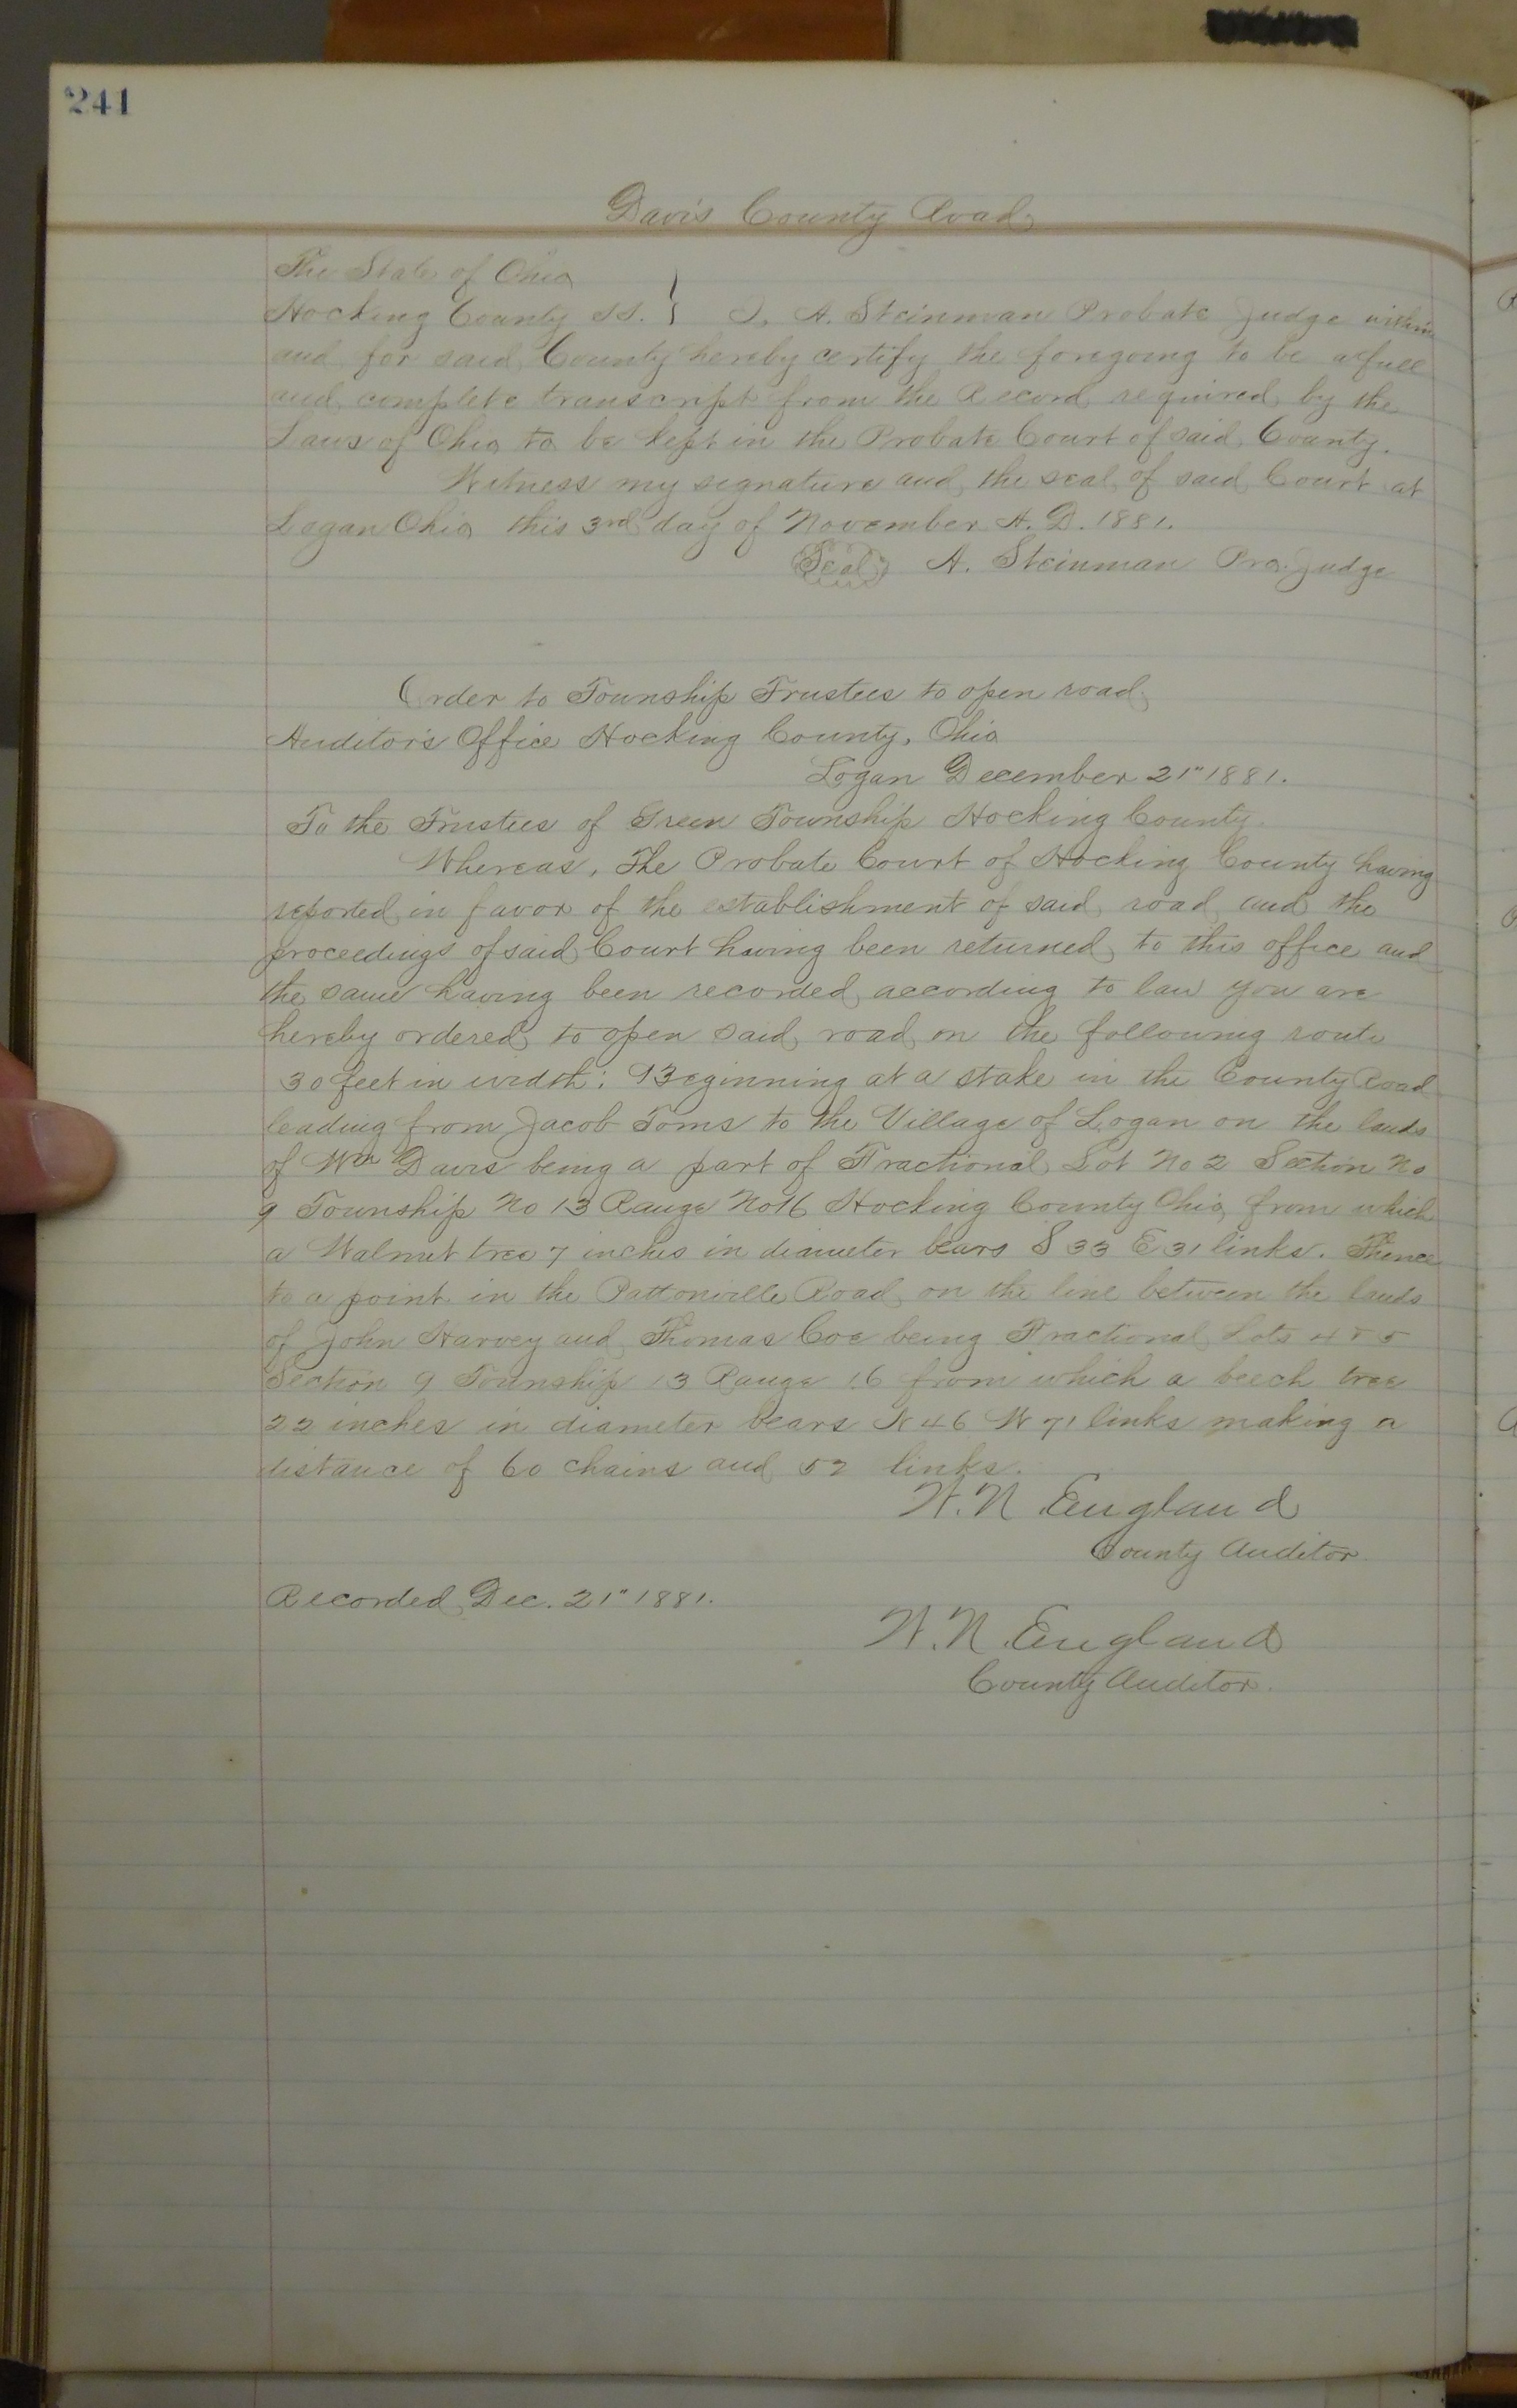 241
Davis County Road
The State of Ohio
Hocking County SS. } I, A. Steinman Probate Judge within
and for said County hereby certify the foregoing to be a full
and complete transcript from the Record required by the
Laws of Ohio to be kept in the Probate Court of said County.
Witness my signature and the seal of said Court at
Logan Ohio this 3rd day of November A. D. 1881.
Seal A. Steinman Pro. Judge
Order to Township Trustees to open road
Auditor's Office Hocking County, Ohio
Logan December 21" 1881.
To the Trustees of Green Township Hocking County.
Whereas, The Probate Court of Hocking County having
reported in favor of the establishment of said road and the
proceedings of said Court having been returned to this office and
the same having been recorded according to law you are
hereby ordered to open said road on the following route
30 feet in width: Beginning at a stake in the County Road
leading from Jacob Toms to the Village of Logan on the lands
of Wm Davis being a part of Fractional Lot No 2 Section No
9 Township No 13 Range No 16 Hocking County Ohio from which
a Walnut tree 7 inches in diameter bears S 33 E 31 links. Thence
to a point in the Pattonville Road on the line between the lands
of John Harvey and Thomas Coe being Fractional Lots 4 & 5
Section 9 Township 13 Range 16 from which a beech tree
22 inches in diameter bears N 46 W 71 links making a
distance of 60 chains and 52 links.
W. N. England
County Auditor.
Recorded Dec. 21" 1881.
W. N. England
County Auditor.